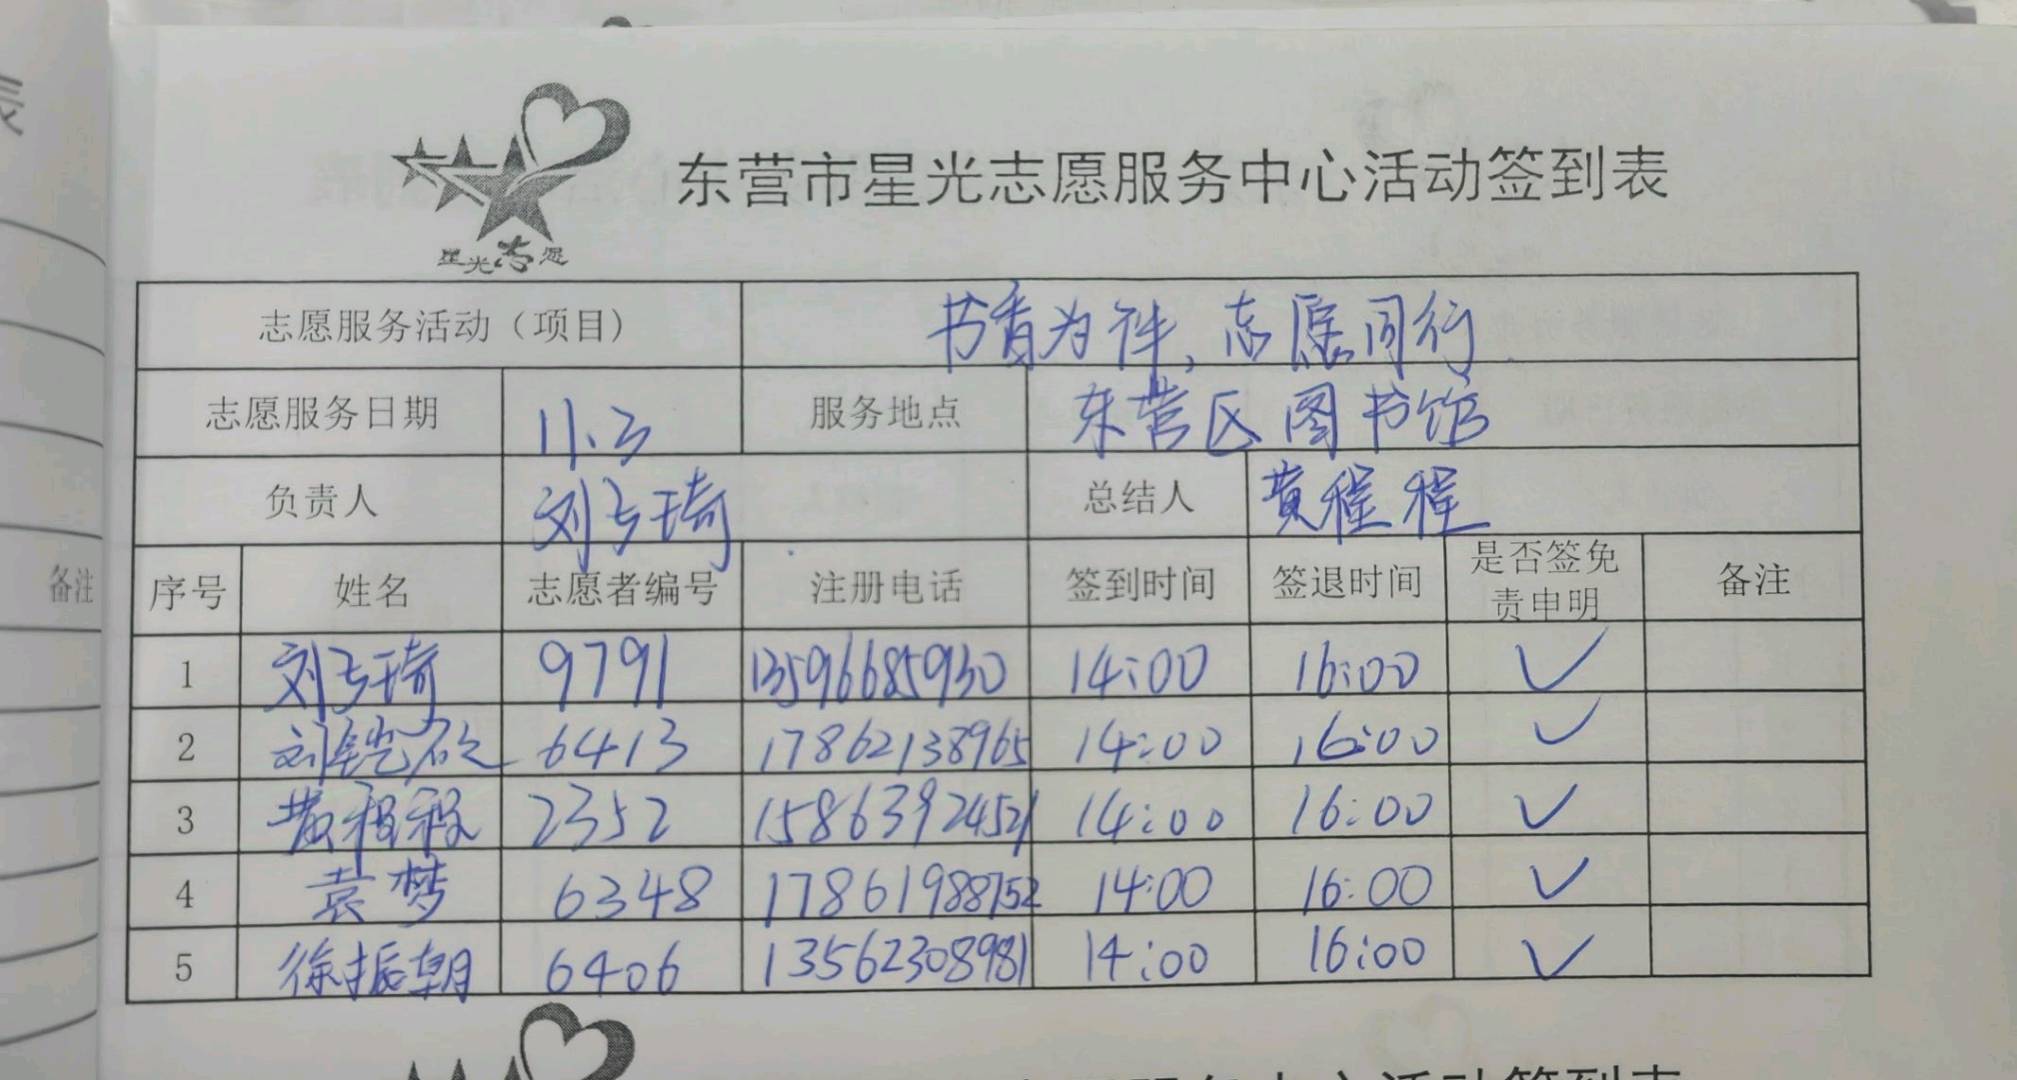 东营市星光志愿服务中心活动签到表
星光志愿
志愿服务活动（项目） 书香为伴，志愿同行
志愿服务日期 11.3 服务地点 东营区图书馆
负责人 总结人 黄程程
序号 姓名 志愿者编号 注册电话 签到时间 签退时间 是否签免责申明 备注
1 9791 13596685930 14:00 16:00 ✓
2 6413 17862138965 14:00 16:00 ✓
3 黄程程 2352 15863924521 14:00 16:00 ✓
4 袁梦 6348 17861988752 14:00 16:00 ✓
5 徐振朝 6406 13562308981 14:00 16:00 ✓
备注
表